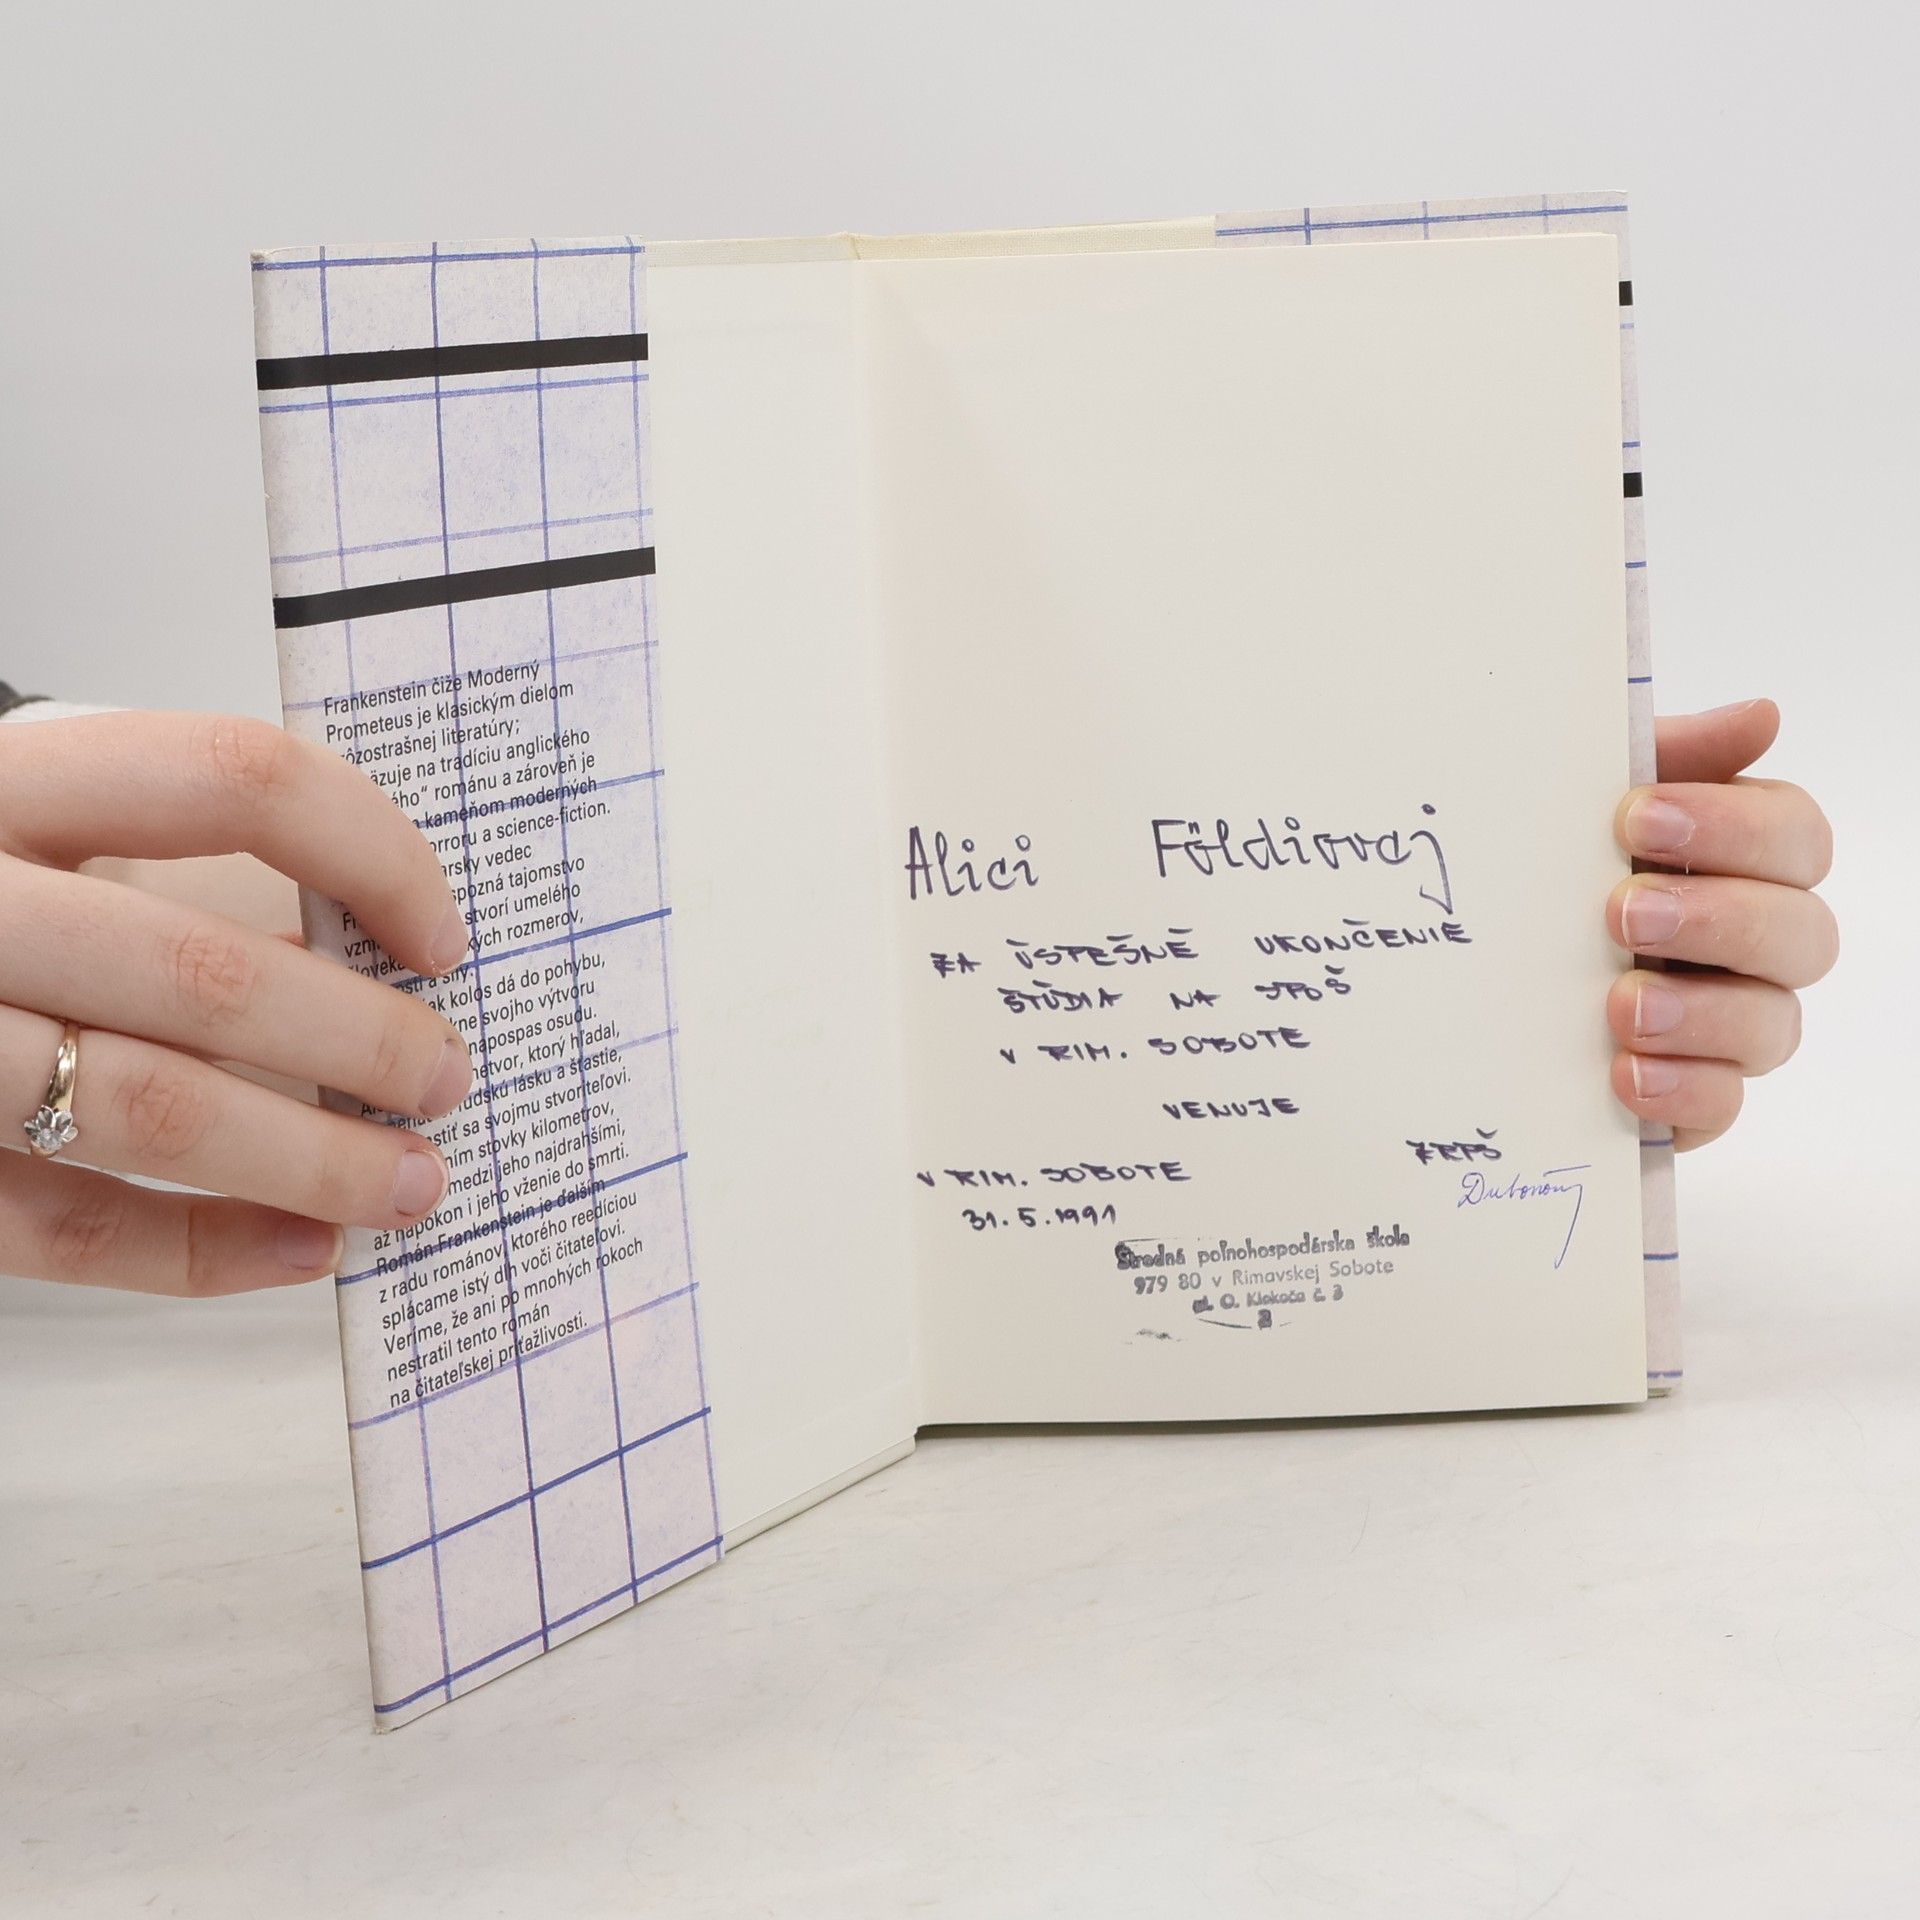 Frankenstein čiže Moderný
Prometeus je klasickým dielom
ôzostrašnej literatúry;
äzuje na tradíciu anglického
ého“ románu a zároveň je
kameňom moderných
orroru a science-fiction.
arsky vedec
spozná tajomstvo
stvorí umelého
kých rozmerov,
sti a sily.
ak kolos dá do pohybu,
kne svojho výtvoru
napospas osudu.
netvor, ktorý hľadal,
ľudskú lásku a šťastie,
stiť sa svojmu stvoriteľovi.
ním stovky kilometrov,
medzi jeho najdrahšími,
až napokon i jeho vženie do smrti.
Román Frankenstein je ďalším
z radu románov, ktorého reedíciou
splácame istý dlh voči čitateľovi.
Veríme, že ani po mnohých rokoch
nestratil tento román
na čitateľskej príťažlivosti.
Alici Földiovej
ZA ÚSPEŠNÉ UKONČENIE
ŠTÚDIA NA SPOŠ
V RIM. SOBOTE
VENUJE
ZRPŠ
V RIM. SOBOTE
31.5.1991
Stredná poľnohospodárska škola
979 80 v Rimavskej Sobote
ul. O. Klokoča č. 3
3